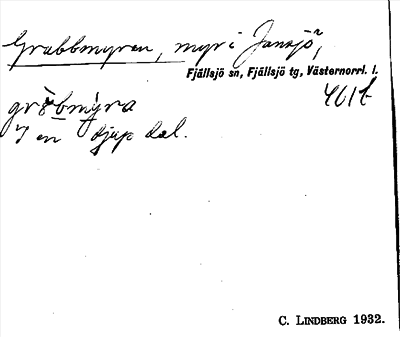 Grubbmyren, myr i Jansjö,
Fjällsjö sn, Fjällsjö tg, Västernorrl. l.
461b
I en djup dal.
C. LINDBERG 1932.